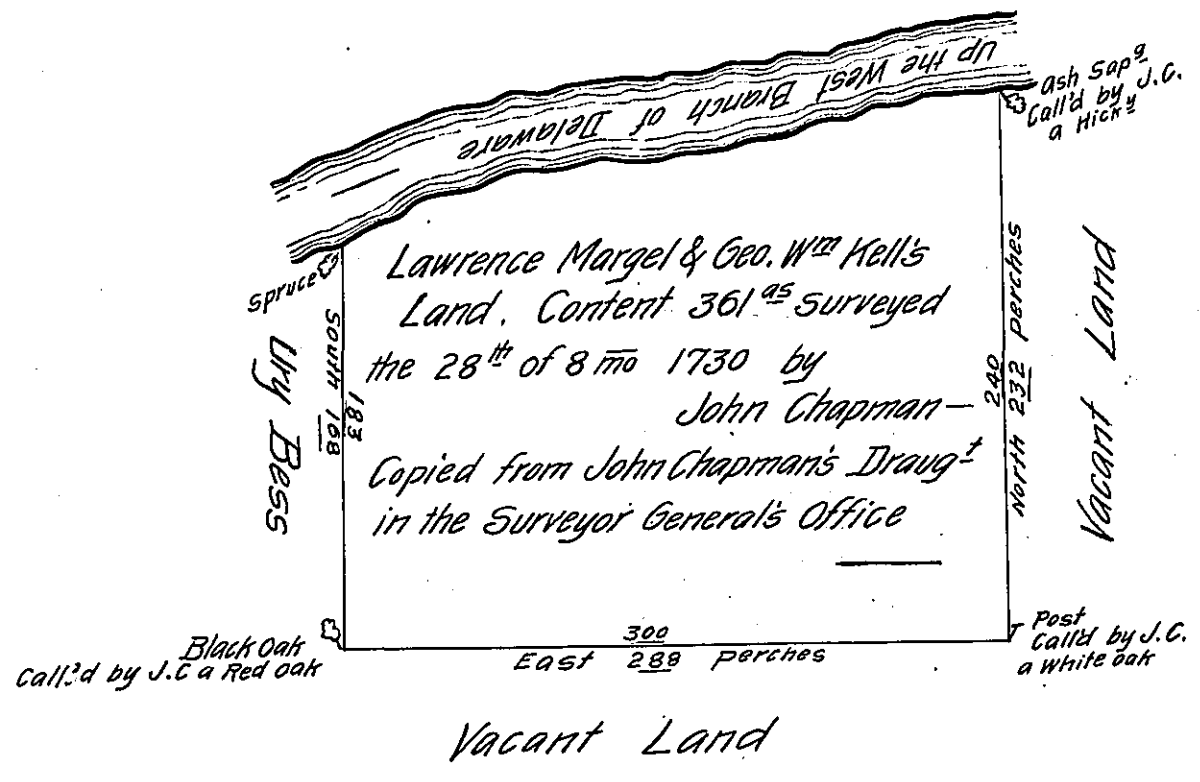 Up the West Branch of Delaware
Ash Sapg
Call'd by J.C.
a Hicky
Spruce
Lawrence Margel & Geo. Wm Kell's
Land. Content 361 as Surveyed
the 28th of 8 mo 1730 by
John Chapman —
Copied from John Chapman's Draugt
in the Surveyor General's Office
South 168
183
Ury Bess
240
North 232 Perches
Vacant Land
Black Oak
Call'd by J.C a Red Oak
300
East 288 perches
Post
Call'd by J.C.
a White oak
Vacant Land